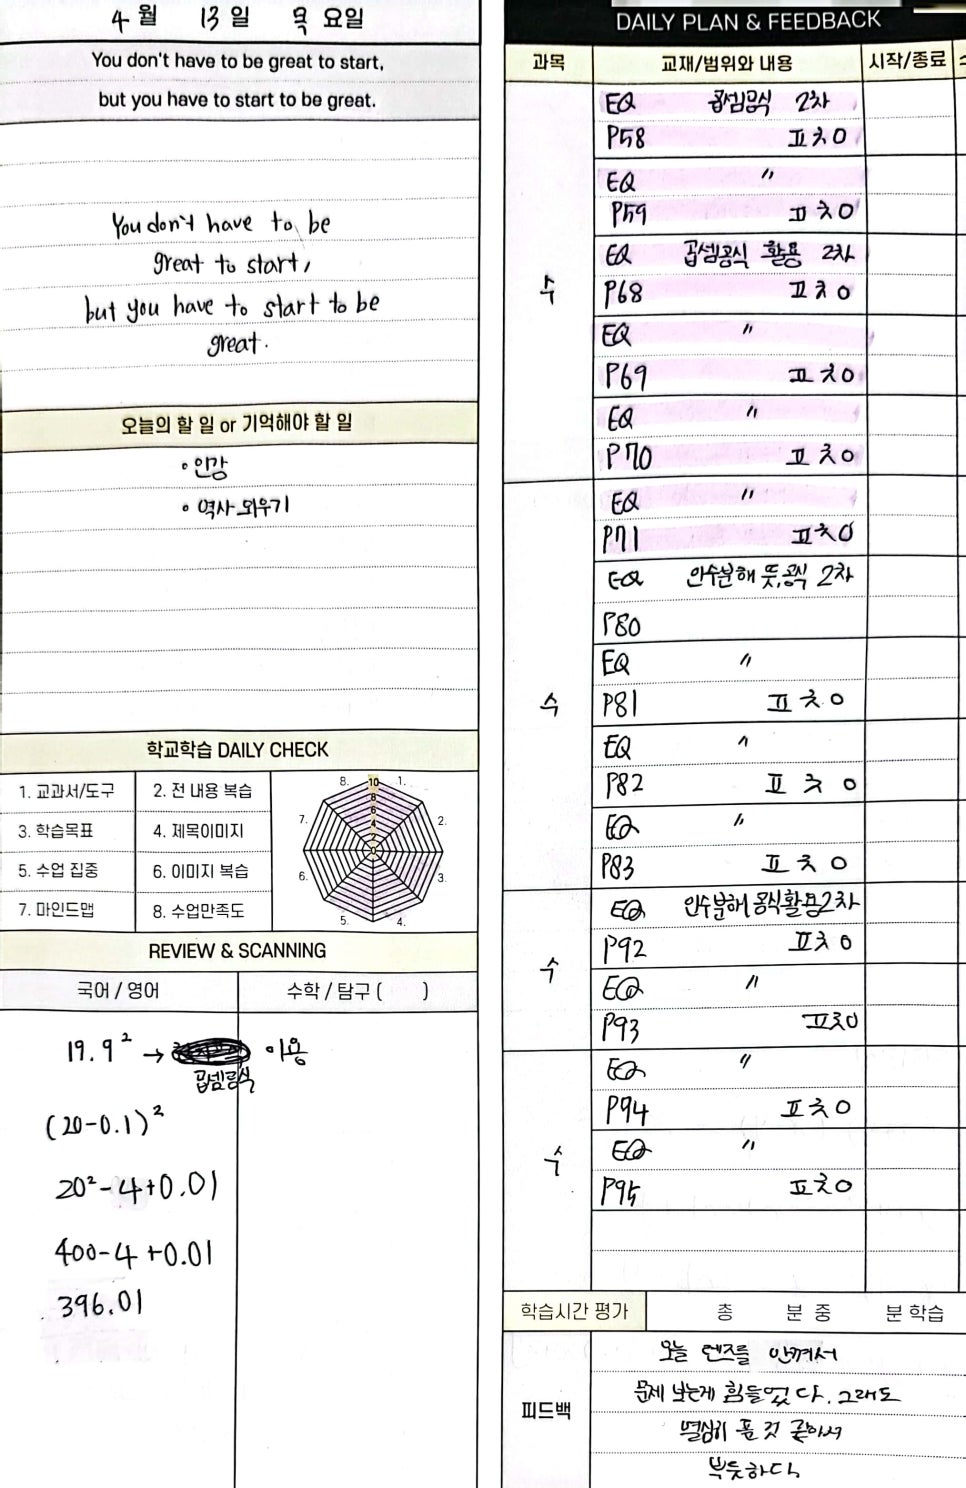 4월 13일 목요일
You don't have to be great to start,
but you have to start to be great.
You don't have to be
great to start,
but you have to start to be
great.
오늘의 할 일 or 기억해야 할 일
• 인강
• 역사 외우기
학교학습 DAILY CHECK
1. 교과서/도구 2. 전 내용 복습
3. 학습목표 4. 제목이미지
5. 수업 집중 6. 이미지 복습
7. 마인드맵 8. 수업만족도
8. 10 1.
8
7. 6 2.
4
2
0
6. 3.
5. 4.
REVIEW & SCANNING
국어 / 영어 수학 / 탐구 ( )
19.9² → 이용
곱셈공식
(20-0.1)²
20²-4+0.01
400-4+0.01
396.01
DAILY PLAN & FEEDBACK
과목 교재/범위와 내용 시작/종료
수
EQ 곱셈공식 2차
P58 프린트 ㅍㅊㅇ
EQ 〃
P59 ㅍㅊㅇ
EQ 곱셈공식 활용 2차
P68 ㅍㅊㅇ
EQ 〃
P69 ㅍㅊㅇ
EQ 〃
P70 ㅍㅊㅇ
수
EQ 〃
P71 ㅍㅊㅇ
EQ 인수분해 뜻,공식 2차
P80
EQ 〃
P81 ㅍㅊㅇ
EQ 〃
P82 ㅍㅊㅇ
EQ 〃
P83 ㅍㅊㅇ
수
EQ 인수분해 공식활용2차
P92 ㅍㅊㅇ
EQ 〃
P93 ㅍㅊㅇ
수
EQ 〃
P94 ㅍㅊㅇ
EQ 〃
P95 ㅍㅊㅇ
학습시간 평가 총 분 중 분 학습
피드백
오늘 렌즈를 안껴서
문제 보는게 힘들었다. 그래도
열심히 푼 것 같아서
뿌듯하다